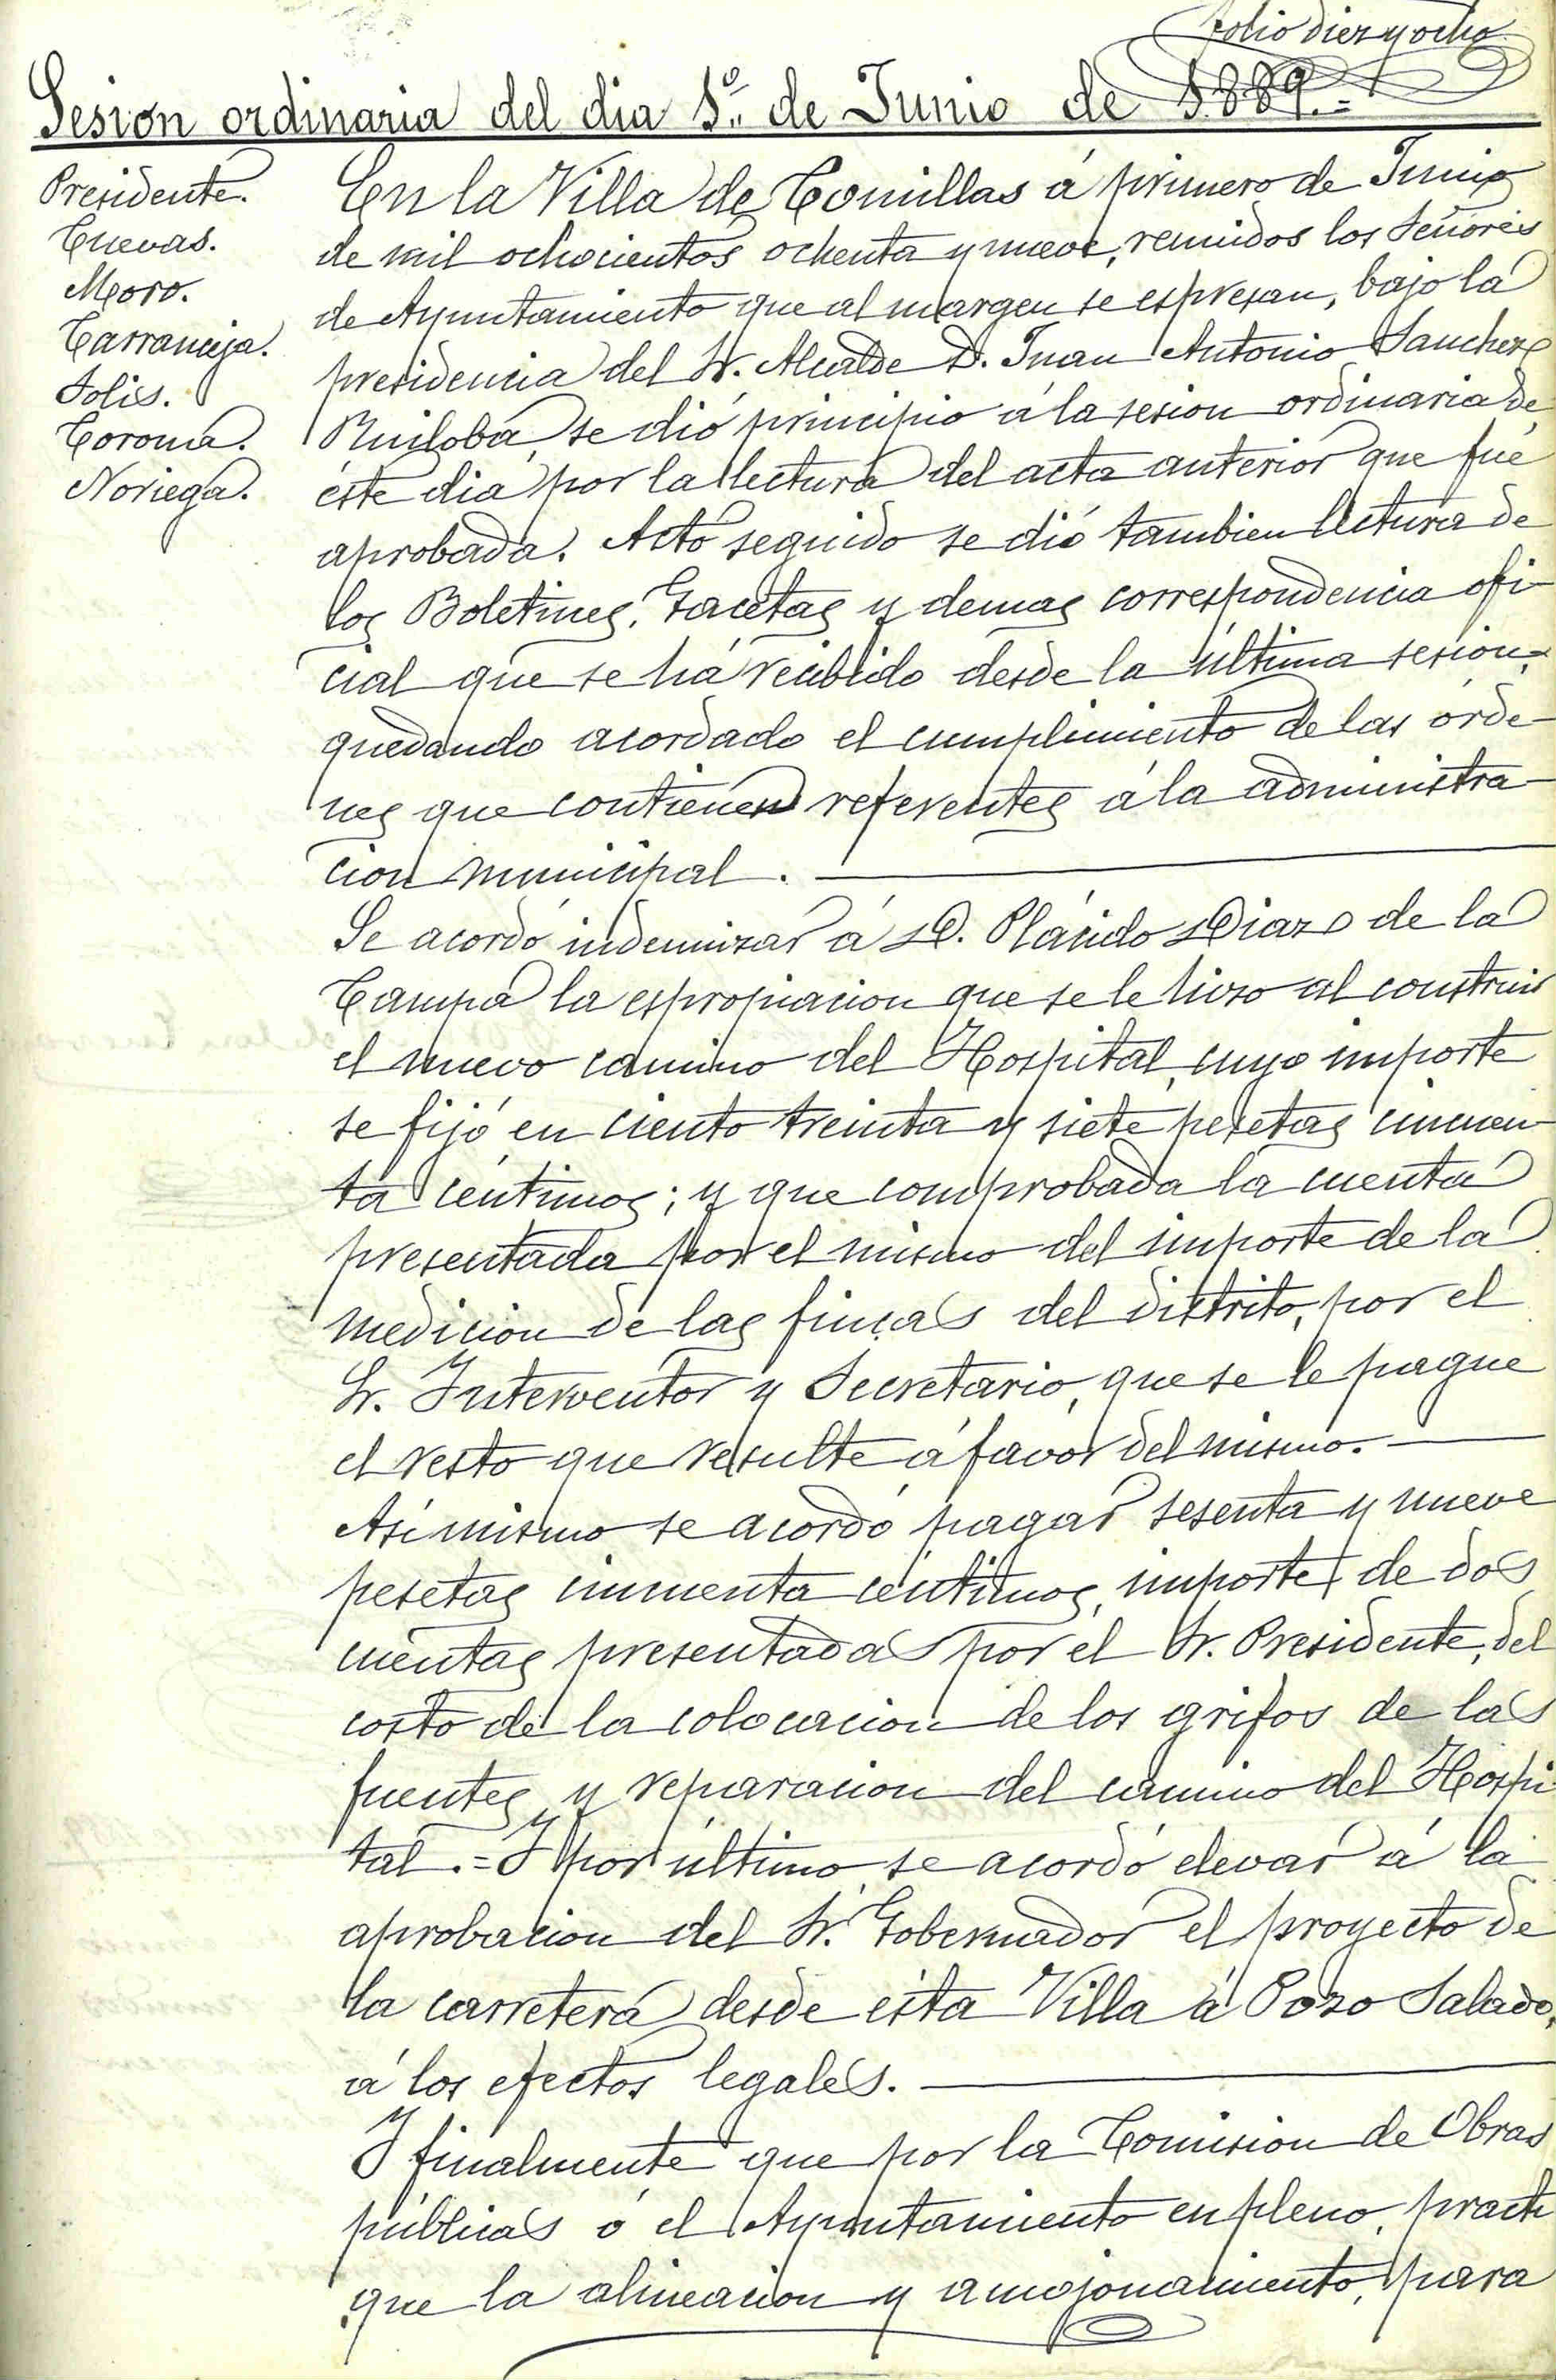 folio diez y ocho
Sesion ordinaria del dia 1º de Junio de 1.889.=
Presidente.
Cuevas.
Moro.
Carranceja.
Solis.
Coroma.
Noriega.
En la Villa de Comillas á primero de Junio
de mil ochocientos ochenta y nueve, reunidos los Señores
de Ayuntamiento que al margen se espresan, bajo la
presidencia del Sr. Alcalde D. Juan Antonio Sanchez
Ruiloba, se dió principio á la sesion ordinaria de
éste dia por la lectura del acta anterior que fué
aprobada. Acto seguido se dió tambien lectura de
los Boletines, Gacetas y demas correspondencia ofi-
cial que se há recibido desde la última sesion,
quedando acordado el cumplimiento de las órde-
nes que contienen referentes á la administra-
cion municipal.
Se acordó indemnizar á D. Plácido Diaz de la
Campa la espropiacion que se le hizo al construir
el nuevo camino del Hospital, cuyo importe
se fijó en ciento treinta y siete pesetas cincuen-
ta céntimos; y que comprobada la cuenta
presentada por el mismo del importe de la
medicion de las fincas del distrito, por el
Sr. Interventor y Secretario, que se le pague
el resto que resulte á favor del mismo.
Asímismo se acordó pagar sesenta y nueve
pesetas cincuenta céntimos, importe de dos
cuentas presentadas por el Sr. Presidente, del
costo de la colocacion de los grifos de las
fuentes y reparacion del camino del Hospi
tal.=Y por último se acordó elevar á la
aprobacion del Sr. Gobernador el proyecto de
la carretera desde ésta Villa á Pozo Salado,
á los efectos legales.
Y finalmente que por la Comision de Obras
públicas ó el Ayuntamiento en pleno, practi
que la alineacion y amojonamiento, para